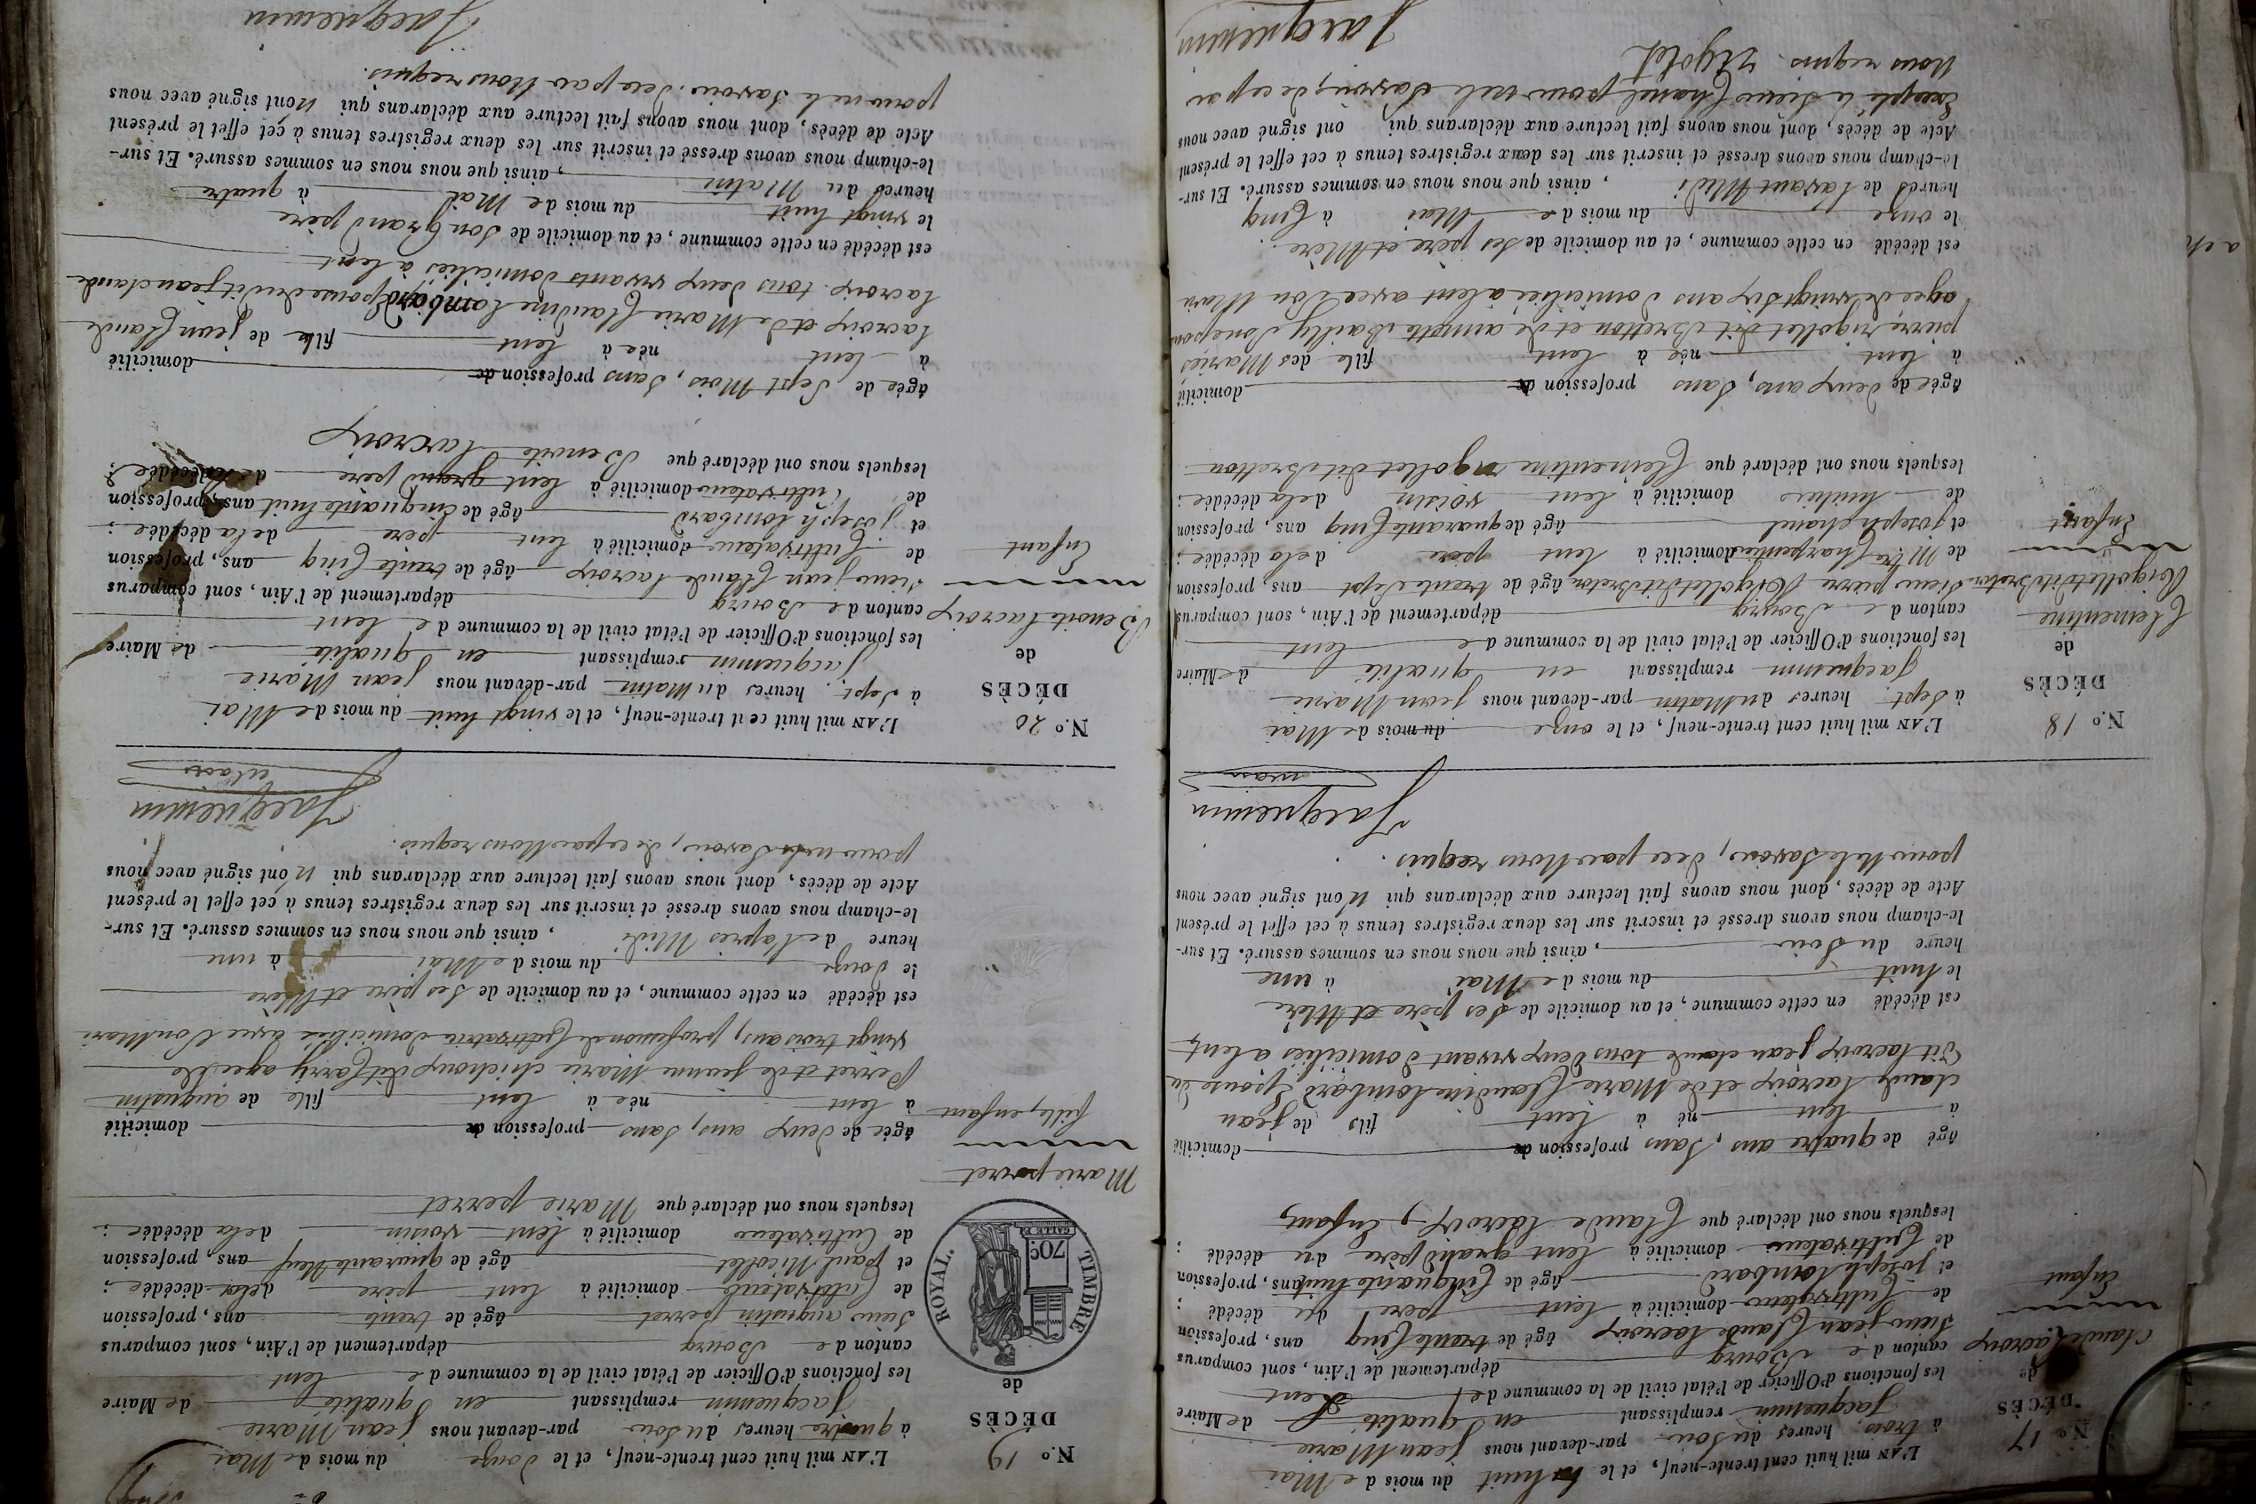 N.º 17
DÉCÈS
de
Claude Lacroix
Enfant
L'AN mil huit cent trente-neuf, et le huit du mois de Mai
à trois heures du soir par-devant nous Jean Marie
Jacquemin remplissant en qualité de Maire
les fonctions d'Officier de l'état civil de la commune de Lent
canton de Bourg département de l'Ain, sont comparus
Sieur jean Claude lacroix âgé de trente Cinq ans, profession
de Cultivateur domicilié à lent père du décédé ;
et joseph lombard âgé de Cinquante huit ans, profession
de Cultivateur domicilié à lent grand père du décédé ;
lesquels nous ont déclaré que Claude lacroix, Enfant,
âgé de quatre ans, sans profession de domicilié
à lent né à lent fils de jean
claude lacroix et de Marie Claudine lombard Epouse du
dit lacroix jean claude tous deux vivant domiciliés a lent,
est décédé en cette commune, et au domicile de ses père et Mère
le huit du mois de Mai à une
heure du soir, ainsi que nous nous en sommes assuré. Et sur-
le-champ nous avons dressé et inscrit sur les deux registres tenus à cet effet le présent
Acte de décès, dont nous avons fait lecture aux déclarans qui N'ont signé avec nous
pour Ne le savoir, de ce par Nous requis.
Jacquemin
maire
N.º 18
DÉCÈS
de
Clementine
Rigollet dit Bretton
Enfant
L'AN mil huit cent trente-neuf, et le onze du mois de Mai
à sept heures du Matin par-devant nous Jean Marie
Jacquemin remplissant en qualité de Maire
les fonctions d'Officier de l'état civil de la commune de lent
canton de Bourg département de l'Ain, sont comparus
Sieur pierre Rigollet dit Bretton âgé de trente Sept ans, profession
de Mtre Charpentier domicilié à lent père de la décédée ;
et joseph chanel âgé de quarante Cinq ans, profession
de huilier domicilié à lent voisin de la décédée ;
lesquels nous ont déclaré que Clementine rigollet dit Bretton
âgée de deux ans, sans profession de domicilié
à lent née à lent fille des Mariés
pierre rigollet dit Bretton et de annette Bailly son epouse
agée de vingt six ans domiciliée a lent avec son Mari
est décédé en cette commune, et au domicile de ses père et Mère.
le onze du mois de Mai à Cinq
heures de l'avant Midi, ainsi que nous nous en sommes assuré. Et sur-
le-champ nous avons dressé et inscrit sur les deux registres tenus à cet effet le présent
Acte de décès, dont nous avons fait lecture aux déclarans qui ont signé avec nous
Excepté le sieur Chanel pour ne le savoir, de ce par
Nous requis. Rigolet
Jacquemin
N.º 19
DÉCÈS
de
TIMBRE ROYAL.
70c
Marie perret
fille, enfant
L'AN mil huit cent trente-neuf, et le douze du mois de Mai
à quatre heures du soir par-devant nous jean Marie
Jacquemin remplissant en qualité de Maire
les fonctions d'Officier de l'état civil de la commune de lent
canton de Bourg département de l'Ain, sont comparus
Sieur augustin perret âgé de trente ans, profession
de Cultivateur domicilié à lent père de la décédée ;
et paul Nicollet âgé de quarante Neuf ans, profession
de Cultivateur domicilié à lent voisin de la décédée ;
lesquels nous ont déclaré que Marie perret
âgée de deux ans, sans profession de domicilié
à lent née à lent fille de augustin
Perret et de jeanne Marie chichoux dit Carry agée de
vingt trois ans, profession de Cultivatrice domiciliée avec son Mari
est décédé en cette commune, et au domicile de ses père et Mère
le douze du mois de Mai à une
heure de l'après Midi, ainsi que nous nous en sommes assuré. Et sur-
le-champ nous avons dressé et inscrit sur les deux registres tenus à cet effet le présent
Acte de décès, dont nous avons fait lecture aux déclarans qui N'ont signé avec nous
pour ne le savoir, de ce par Nous requis.
Jacquemin
N.º 20
DÉCÈS
de
Benoite lacroix
Enfant
L'AN mil huit cent trente-neuf, et le vingt huit du mois de Mai
à sept heures du Matin par-devant nous jean Marie
jacquemin remplissant en qualité de Maire
les fonctions d'Officier de l'état civil de la commune de lent
canton de Bourg département de l'Ain, sont comparus
Sieur jean Claude lacroix âgé de trente Cinq ans, profession
de Cultivateur domicilié à lent père de la décédée ;
et joseph lombard âgé de Cinquante huit ans, profession
de Cultivateur domicilié à lent grand père de la décédée ;
lesquels nous ont déclaré que Benoite lacroix
âgée de Sept Mois, sans, profession de domicilié
à lent née à lent fille de jean Claude
lacroix et de Marie Claudine lombard Epouse du dit jean claude
lacroix tous deux vivants domiciliés à lent
est décédé en cette commune, et au domicile de son Grand père
le vingt huit du mois de Mai à quatre
heures du Matin, ainsi que nous nous en sommes assuré. Et sur-
le-champ nous avons dressé et inscrit sur les deux registres tenus à cet effet le présent
Acte de décès, dont nous avons fait lecture aux déclarans qui N'ont signé avec nous
pour ne le savoir. de ce par Nous requis.
Jacquemin